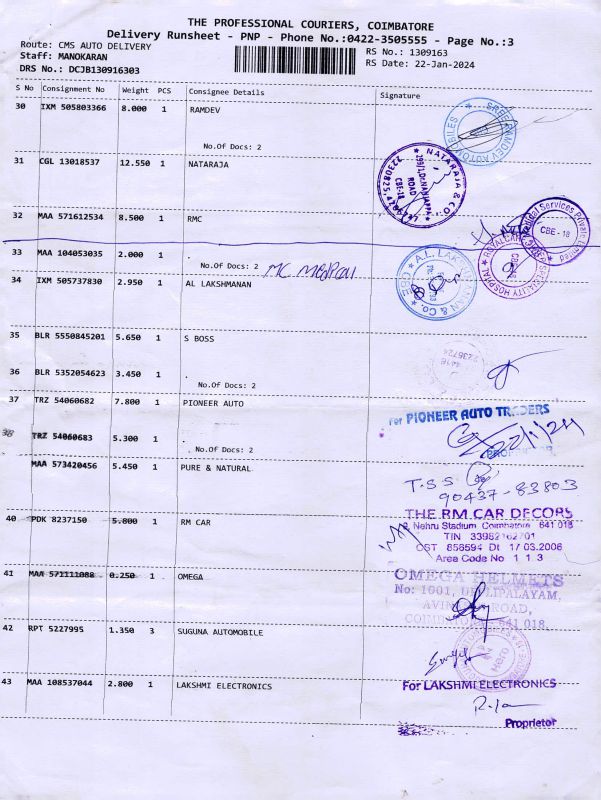 THE PROFESSIONAL COURIERS, COIMBATORE
Delivery Runsheet - PNP - Phone No.:0422-3505555 - Page No.:3
Route: CMS AUTO DELIVERY
RS No.: 1309163
Staff: MANOKARAN
RS Date: 22-Jan-2024
DRS No.: DCJB130916303
S No Consignment No Weight PCS Consignee Details Signature
30 IXM 505803366 8.000 1 RAMDEV
No.Of Docs: 2
31 CGL 13018537 12.550 1 NATARAJA
NATARAJA & CO.
ROAD
CBE-18
32 MAA 571612534 8.500 1 RMC
Medical Services Private Limited
CBE - 18
33 MAA 104053035 2.000 1 .
No.Of Docs: 2
MC Medical
34 IXM 505737830 2.950 1 AL LAKSHMANAN
35 BLR 5550845201 5.650 1 S BOSS
36 BLR 5352054623 3.450 1 .
No.Of Docs: 2
37 TRZ 54060682 7.800 1 PIONEER AUTO
For PIONEER AUTO TRADERS
22/1/24
38 TRZ 54060683 5.300 1 .
No.Of Docs: 2
MAA 573420456 5.450 1 PURE & NATURAL
T.S.S
90437-83803
THE RM CAR DECORS
40 PDK 8237150 5.800 1 RM CAR
Nehru Stadium, Coimbatore 641 018
CST 858594 Dt 17 03.2006
Area Code No 1 1 3
41 MAA 571111088 0.250 1 OMEGA
OMEGA HELMETS
42 RPT 5227995 1.350 3 SUGUNA AUTOMOBILE
43 MAA 108537044 2.800 1 LAKSHMI ELECTRONICS
For LAKSHMI ELECTRONICS
Proprietor